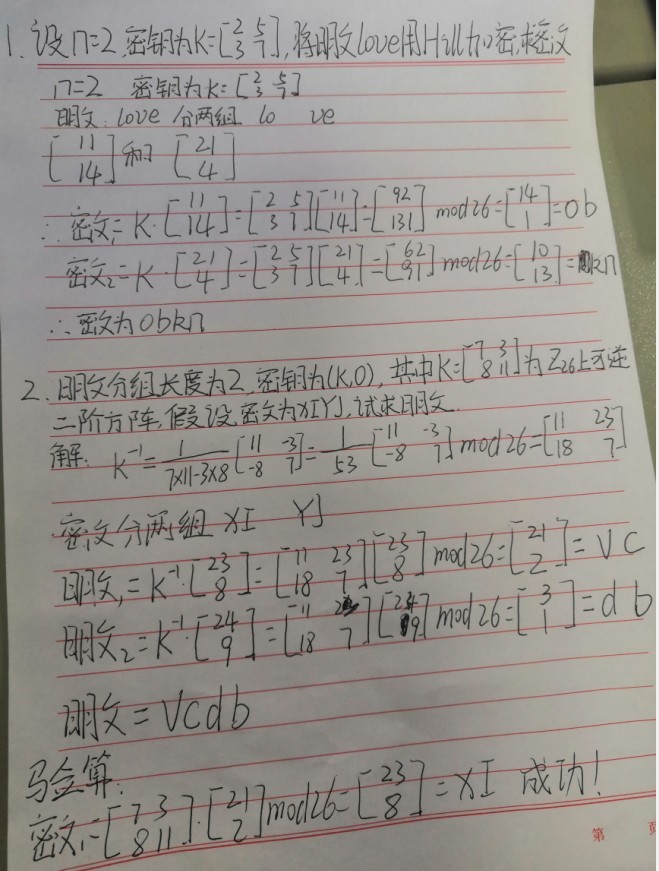 1. 设n=2,密钥为K=[2 5; 3 7],将明文love用Hill加密,求密文
n=2 密钥为K=[2 5; 3 7]
明文:love 分两组 lo ve
[11; 14]和[21; 4]
∴密文₁=K·[11; 14]=[2 5; 3 7][11; 14]=[92; 131] mod26=[14; 1]=ob
密文₂=K·[21; 4]=[2 5; 3 7][21; 4]=[62; 91] mod26=[10; 13]=kn
∴密文为obkn
2. 明文分组长度为2,密钥为(K,0),其中K=[7 3; 8 11]为Z26上可逆
二阶方阵,假设密文为XIYJ,试求明文.
解: K⁻¹=1/(7×11-3×8)[11 -3; -8 7]=1/53[11 -3; -8 7] mod26=[11 23; 18 7]
密文分两组 XI YJ
明文₁=K⁻¹·[23; 8]=[11 23; 18 7][23; 8] mod26=[21; 2]=VC
明文₂=K⁻¹·[24; 9]=[11 23; 18 7][24; 9] mod26=[3; 1]=db
明文=Vcdb
验算:
密文₁=[7 3; 8 11]·[21; 2]mod26=[23; 8]=XI 成功!
第 页